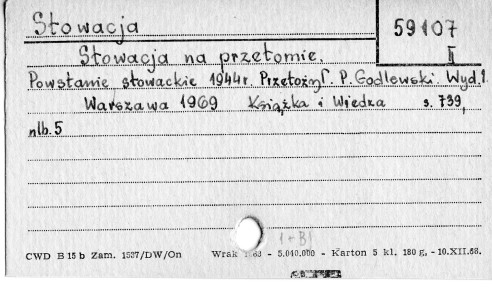 Słowacja
59107
II
Słowacja na przełomie.
Powstanie słowackie 1944r. Przełożył. P. Godlewski. Wyd. 1.
Warszawa 1969 Książka i Wiedza s. 739,
nlb. 5
CWD B 15 b Zam. 1537/DW/On Wrak - 5.040.000 - Karton 5 kl. 180 g. - 10.XII.68.